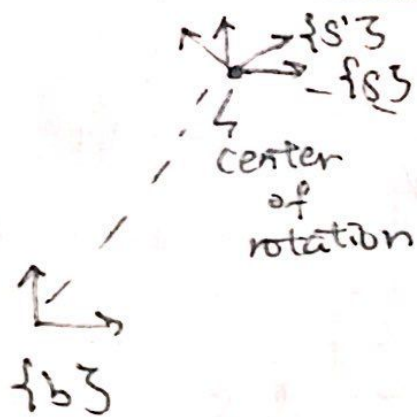 {s'}
{s}
center
of
rotation
{b}